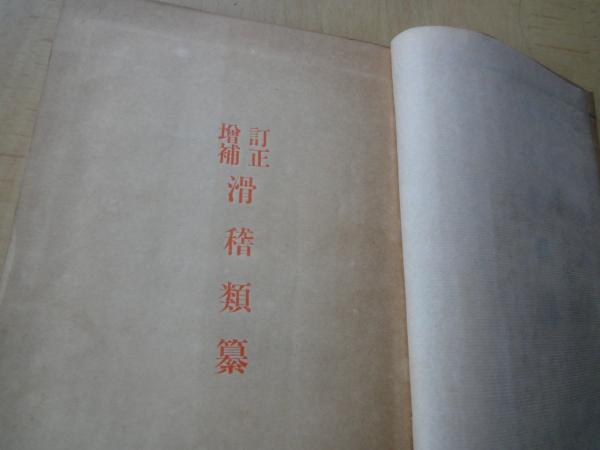 訂正
增補
滑稽類纂